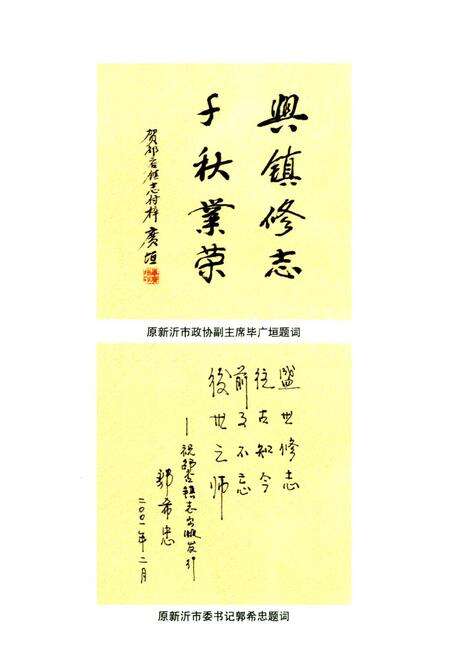 興鎮修志
千秋業荣
贺邵店镇志付梓 廣垣
原新沂市政协副主席毕广垣题词
盛世修志
往古知今
前事不忘
後世之师
——祝邵店镇志出版发行
郭希忠
二〇〇一年二月
原新沂市委书记郭希忠题词